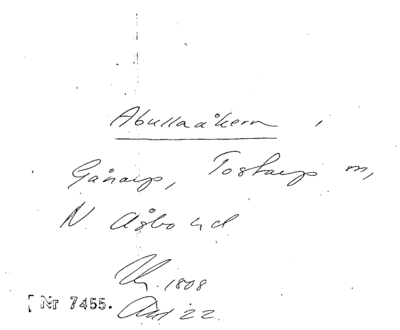 Abullaåkern,
Gånarp, Tostarps m,
N. Åsbo hd
1808
[Nr 7455.
Akt 22.